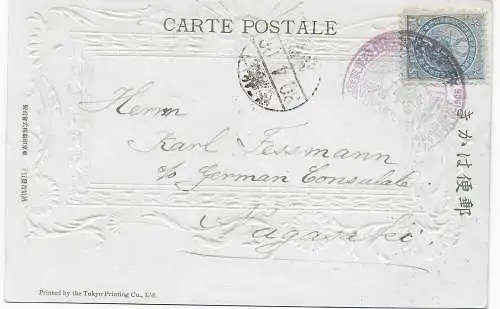 CARTE POSTALE
郵便はかき
Herrn
Karl Fessmann
c/o German Consulate
Nagasaki.
Printed by the Tokyo Printing Co., L'd.